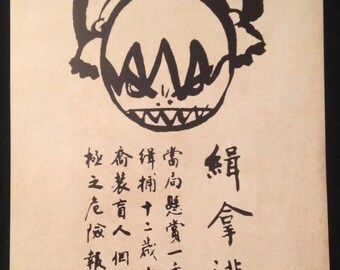 緝拿逃
當局懸賞一千
緝捕十二歲
喬裝盲人個
極之危險報